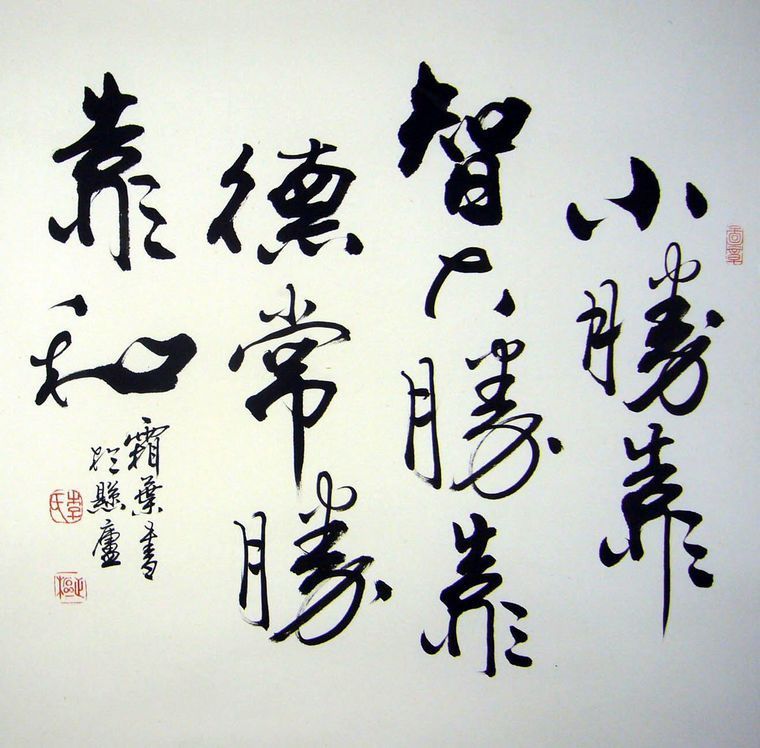 小勝靠
智大勝靠
德常勝
靠和
霜葉書
於懸廬